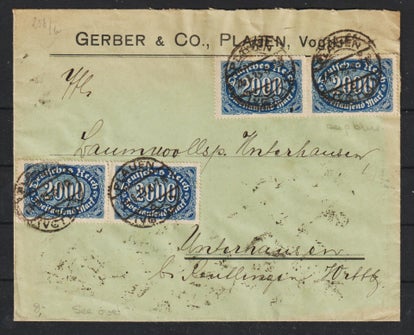 GERBER & CO., PLAUEN, Vogtl.
Deutsches Reich
2000
Zweitausend Mark
Deutsches Reich
2000
Zweitausend Mark
PLAUEN
Baumwollsp. Unterhausen
Deutsches Reich
2000
Zweitausend Mark
Deutsches Reich
2000
Zweitausend Mark
PLAUEN
Unterhausen
b/ Reutlingen Wttbg
See over